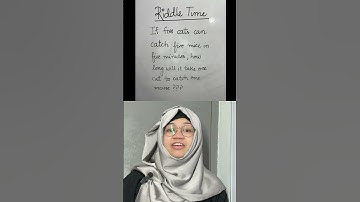 Riddle Time
If five cats can
catch five mice in
five minutes, how
long will it take one
cat to catch one
mouse ???